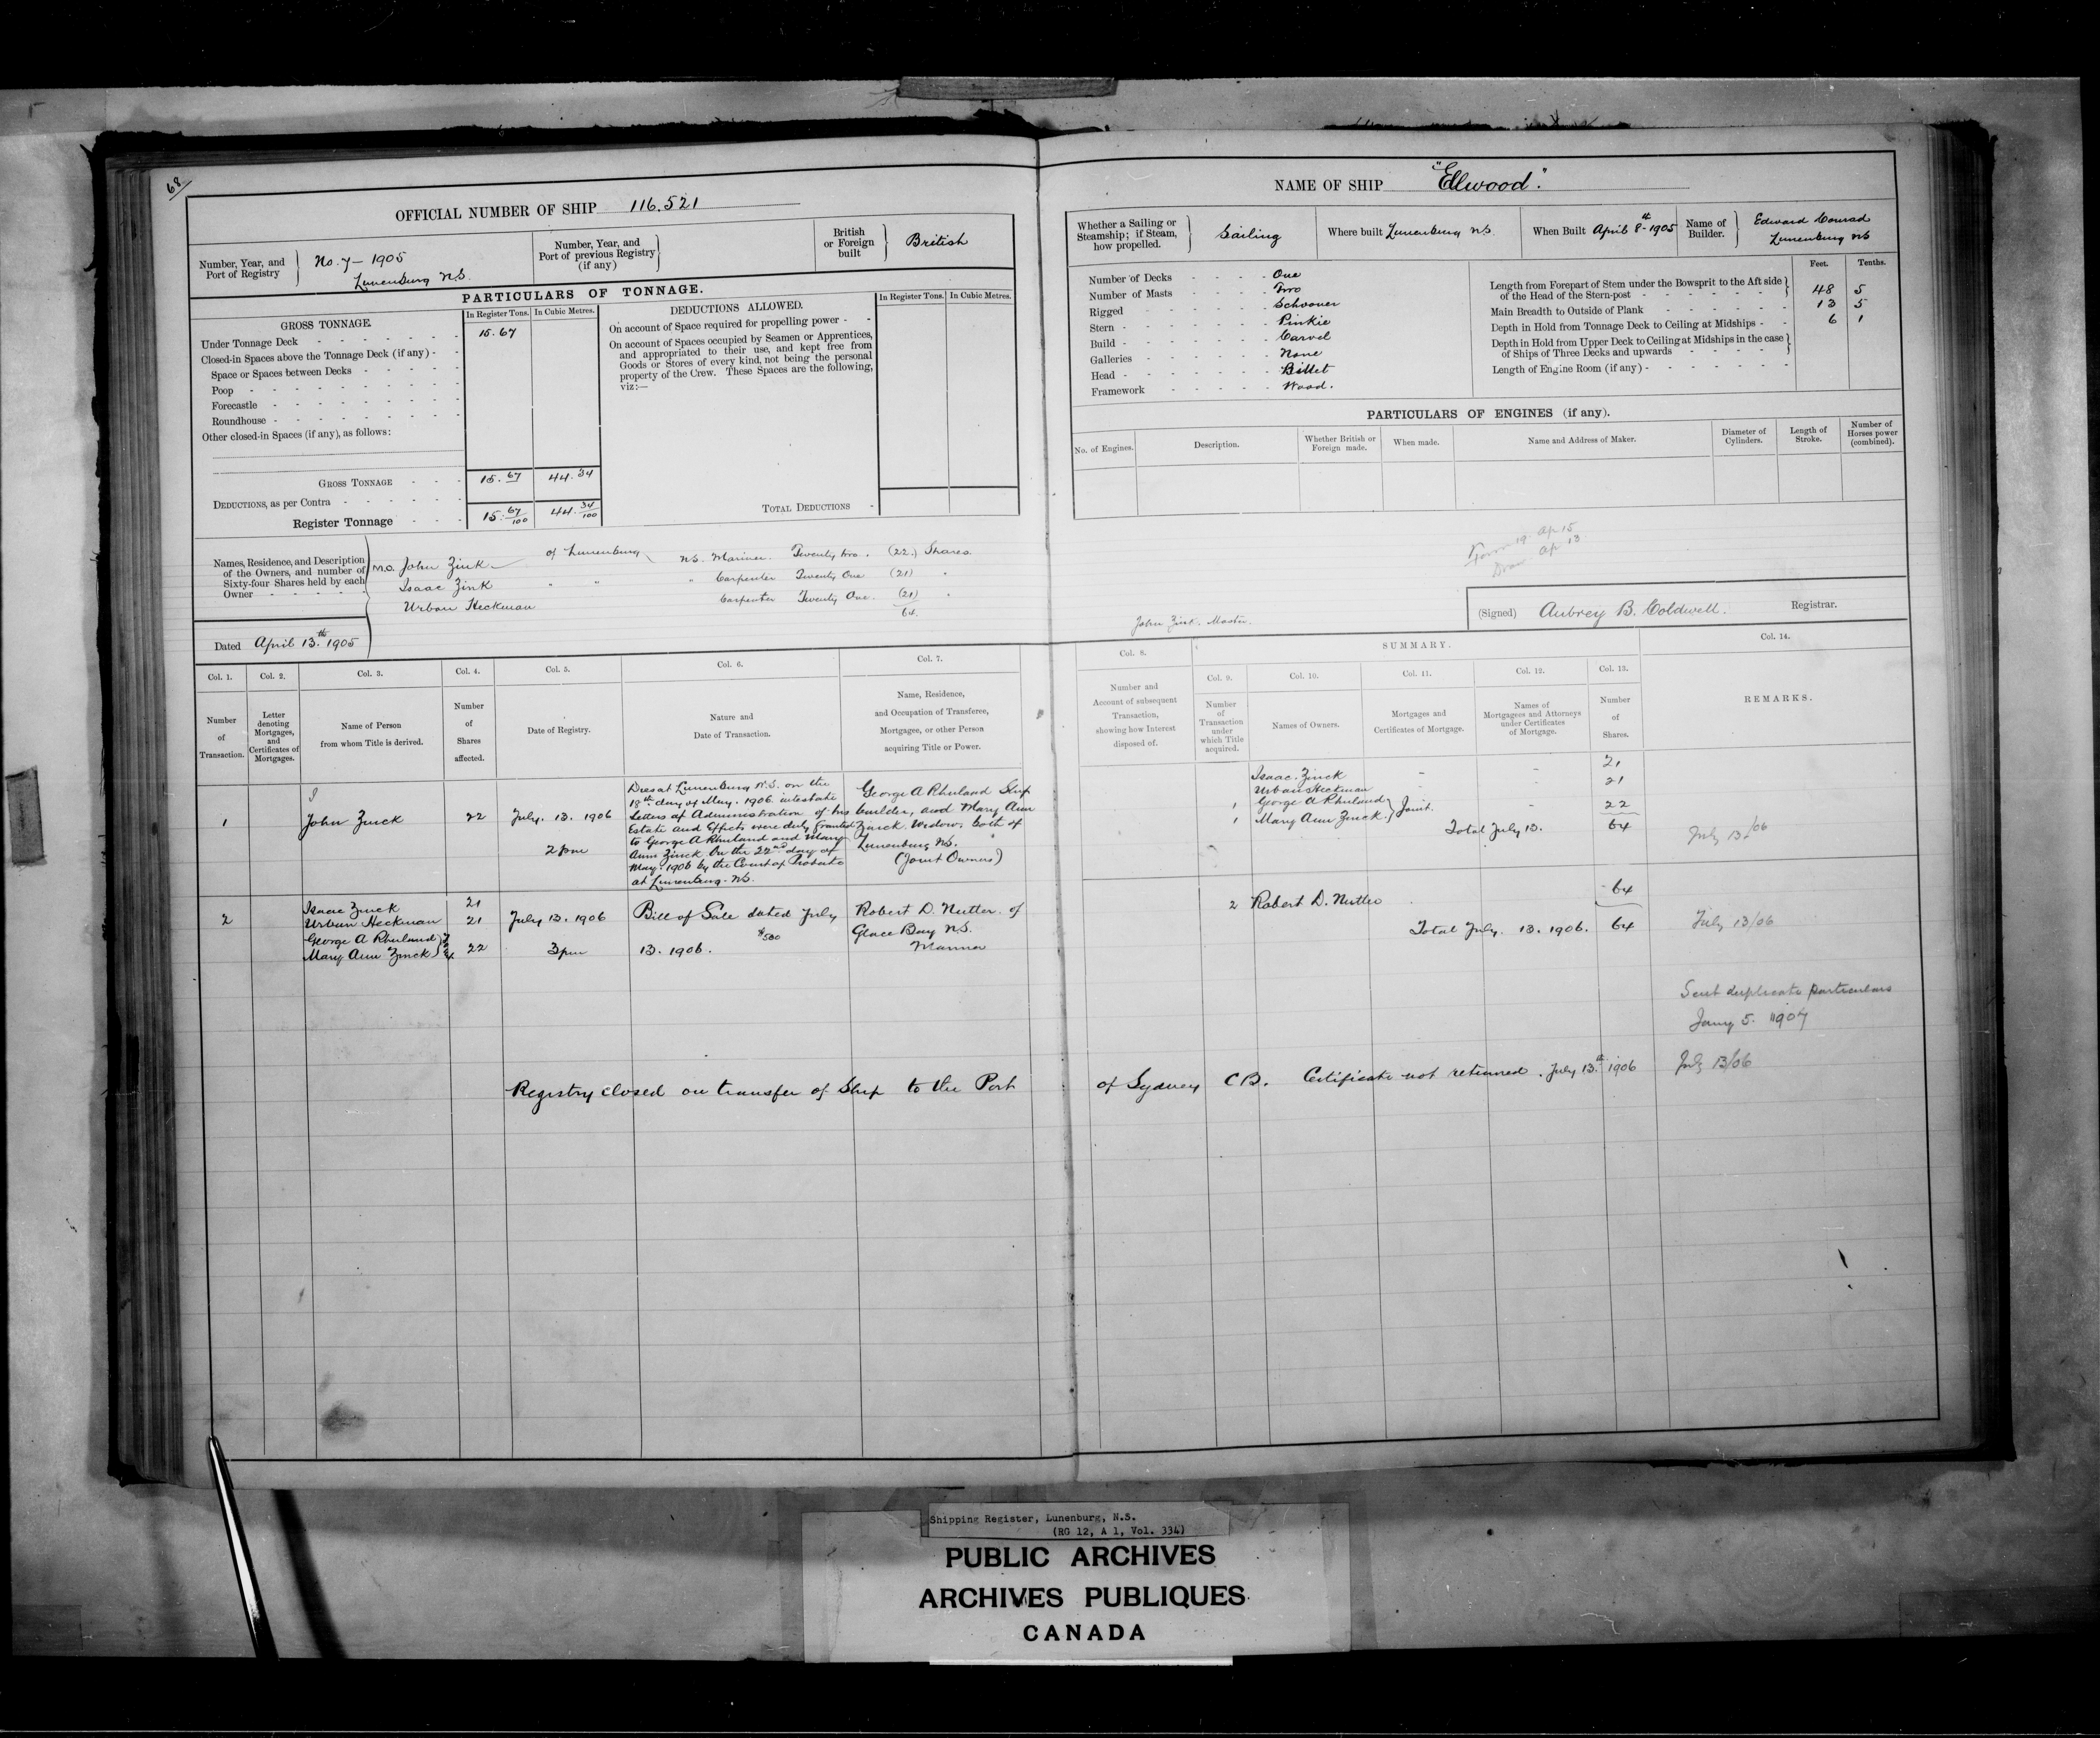 68
OFFICIAL NUMBER OF SHIP 116.521
Number, Year, and Port of Registry
No. 7 - 1905
Lunenburg N.S.
Number, Year, and Port of previous Registry (if any)
British or Foreign built
British
PARTICULARS OF TONNAGE.
GROSS TONNAGE.
In Register Tons.
In Cubic Metres.
Under Tonnage Deck 15.67
Closed-in Spaces above the Tonnage Deck (if any) -
Space or Spaces between Decks
Poop
Forecastle
Roundhouse
Other closed-in Spaces (if any), as follows:
GROSS TONNAGE 15.67 44.34
DEDUCTIONS, as per Contra
Register Tonnage 15. 67/100 44. 34/100
DEDUCTIONS ALLOWED.
In Register Tons.
In Cubic Metres.
On account of Space required for propelling power -
On account of Spaces occupied by Seamen or Apprentices,
and appropriated to their use, and kept free from
Goods or Stores of every kind, not being the personal
property of the Crew. These Spaces are the following,
viz:—
TOTAL DEDUCTIONS
Names, Residence, and Description
of the Owners, and number of
Sixty-four Shares held by each
Owner
M.O. John Zink of Lunenburg N.S. Mariner Twenty two. (22.) Shares.
Isaac Zink " " " Carpenter Twenty One (21) "
Urban Heckman Carpenter Twenty One. (21) "
64.
Dated April 13.th 1905
NAME OF SHIP "Ellwood".
Whether a Sailing or Steamship; if Steam, how propelled.
Sailing
Where built Lunenburg N.S.
When Built April 8th - 1905
Name of Builder.
Edward Conrad
Lunenburg NS
Number of Decks One
Number of Masts Two
Rigged Schooner
Stern Pinkie
Build Carvel
Galleries None
Head Billet
Framework Wood.
Feet. Tenths.
Length from Forepart of Stem under the Bowsprit to the Aft side
of the Head of the Stern-post 48 5
Main Breadth to Outside of Plank 13 5
Depth in Hold from Tonnage Deck to Ceiling at Midships - - 6 1
Depth in Hold from Upper Deck to Ceiling at Midships in the case
of Ships of Three Decks and upwards
Length of Engine Room (if any)
PARTICULARS OF ENGINES (if any).
No. of Engines.
Description.
Whether British or Foreign made.
When made.
Name and Address of Maker.
Diameter of Cylinders.
Length of Stroke.
Number of Horses power (combined).
Form 19. Ap 15
Ap 13
John Zink. Master.
(Signed) Aubrey B. Coldwell. Registrar.
Col. 1. Col. 2. Col. 3. Col. 4. Col. 5. Col. 6. Col. 7.
Number of Transaction.
Letter denoting Mortgages, and Certificates of Mortgages.
Name of Person from whom Title is derived.
Number of Shares affected.
Date of Registry.
Nature and Date of Transaction.
Name, Residence, and Occupation of Transferee, Mortgagee, or other Person acquiring Title or Power.
Col. 8.
SUMMARY.
Col. 9. Col. 10. Col. 11. Col. 12. Col. 13. Col. 14.
Number and Account of subsequent Transaction, showing how Interest disposed of.
Number of Transaction under which Title acquired.
Names of Owners.
Mortgages and Certificates of Mortgage.
Names of Mortgagees and Attorneys under Certificates of Mortgage.
Number of Shares.
REMARKS.
1
John Zinck
22
July. 13. 1906
2 pm
Dies at Lunenburg N.S. on the
18th day of May. 1906 intestate
Letters of Administration of his
Estate and Effects were duly granted
to George A Rhuland and Mary
Ann Zinck On the 22nd day of
May. 1906 by the Court of Probate
at Lunenburg. N.S.
George A Rhuland Ship
builder, and Mary Ann
Zinck. Widow. both of
Lunenburg N.S.
(Joint Owners)
Isaac. Zinck - - 21
Urban Heckman 21
1 George A Rhuland
1 Mary Ann Zinck. } Joint. - 22
Total July 13. 64
July 13/06
2
Isaac Zinck 21
Urban Heckman 21
George A Rhuland
Mary Ann Zinck 22
July 13. 1906
3 pm
Bill of Sale dated July
$500
13. 1906.
Robert D. Nutter of
Glace Bay N.S.
Mariner
2 Robert D. Nutter 64
Total July. 13. 1906. 64
July 13/06
Sent duplicate particulars
Jany 5. 1907
Registry closed on transfer of Ship to the Port of Sydney C B. Certificate not returned. July 13.th 1906
July 13/06
Shipping Register, Lunenburg, N.S.
(RG 12, A 1, Vol. 334)
PUBLIC ARCHIVES
ARCHIVES PUBLIQUES
CANADA